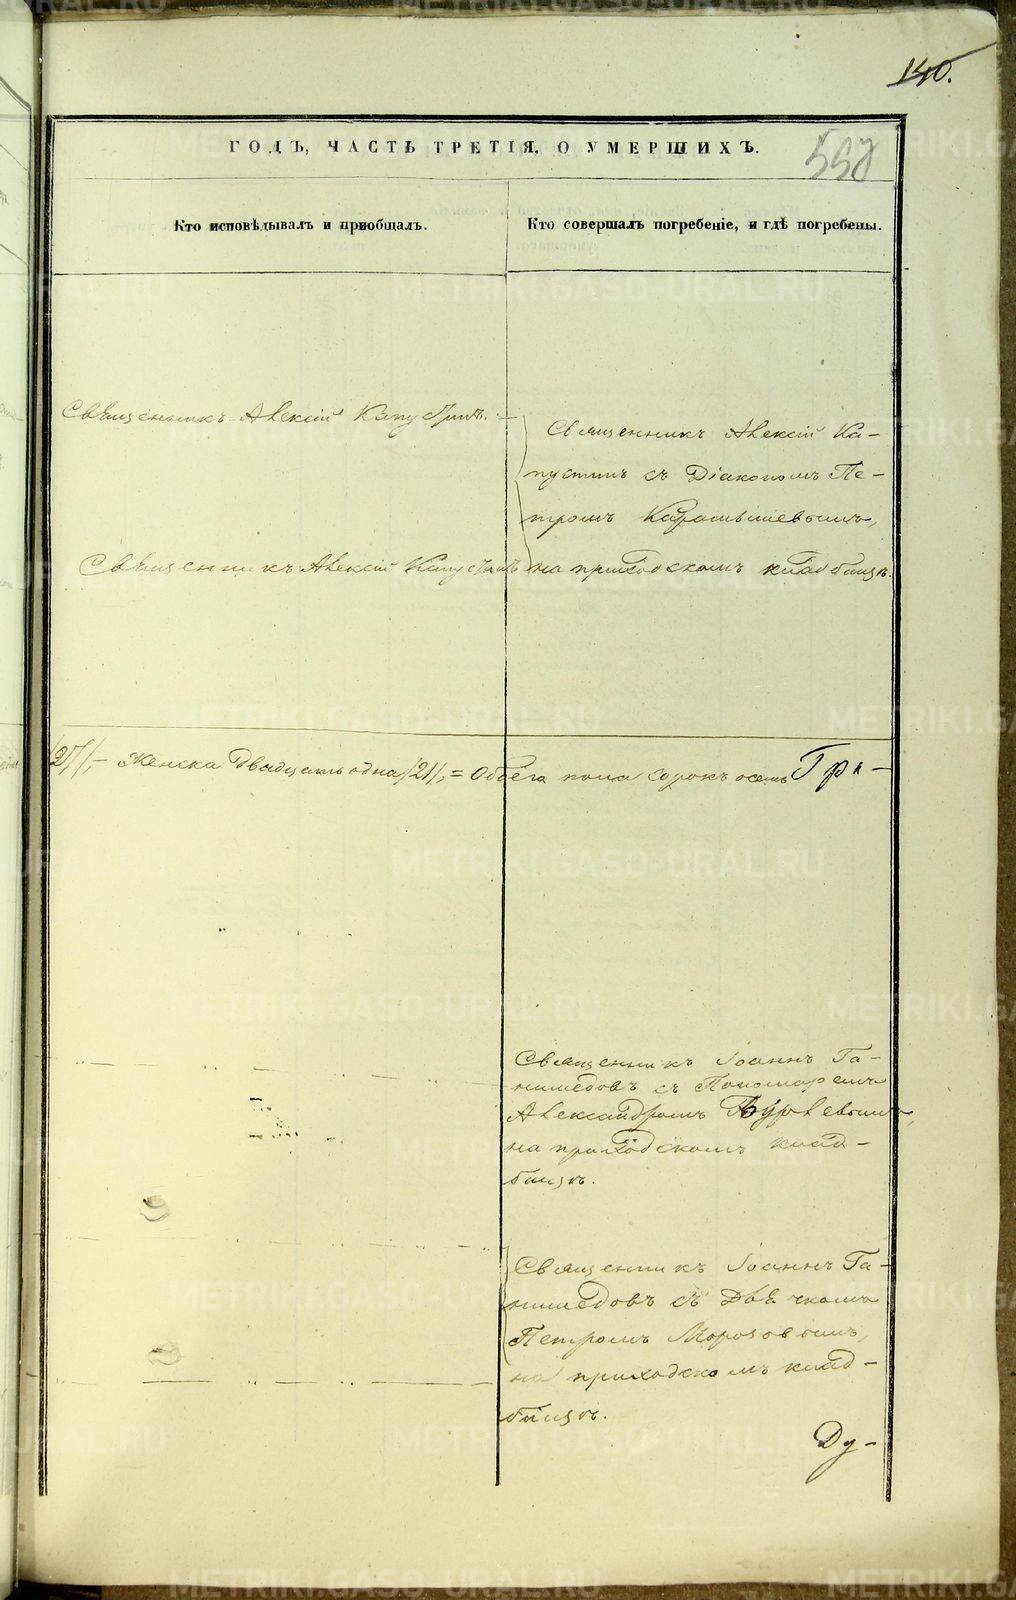 140.
558
ГОДЪ, ЧАСТЬ ТРЕТІЯ, О УМЕРШИХЪ.
Кто исповѣдывалъ и пріобщалъ.
Кто совершалъ погребеніе, и гдѣ погребены.
Священникъ Алексій Капустинъ.
Священникъ Алексій Ка-
пустинъ съ Діакономъ Пе-
тромъ
на приходскомъ кладбищѣ.
Священникъ Алексій Капустинъ
/27/,- Женска двадцать одна /21/, = Обоего пола сорокъ осемь Гра-
Священникъ Іоаннъ Га-
съ Пономаремъ
Александромъ
на приходскомъ клад-
бищѣ.
Священникъ Іоаннъ Га-
съ Дьячкомъ
Петромъ Морозовымъ,
на приходскомъ клад-
бищѣ.
Ду-
METRIKI.GASO-URAL.RU